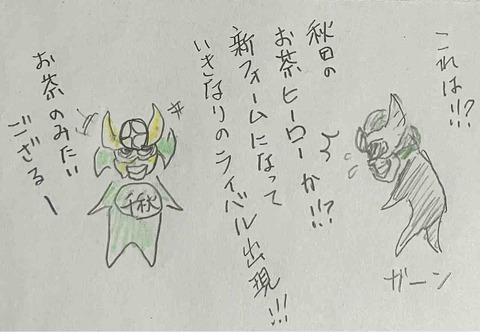 これは!!?
ガーン
秋田の
お茶ヒーローか!!?
新フォームになって
いきなりのライバル出現!!!
千秋
お茶のみたい
ござるー